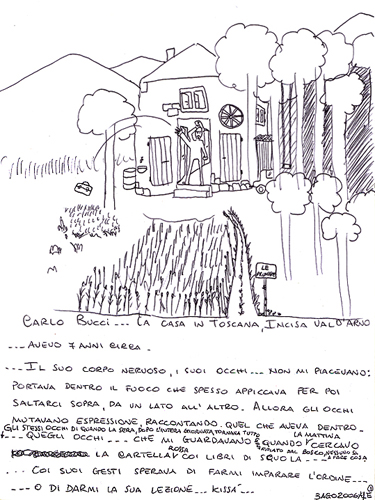 LE
CARLO BUCCI... LA CASA IN TOSCANA, INCISA VAL D'ARNO
...AVEVO 7 ANNI CIRCA.
...IL SUO CORPO NERVOSO, I SUOI OCCHI... NON MI PIACEVANO:
PORTAVA DENTRO IL FUOCO CHE SPESSO APPICCAVA PER POI
SALTARCI SOPRA, DA UN LATO ALL'ALTRO. ALLORA GLI OCCHI
MUTAVANO ESPRESSIONE, RACCONTANDO. QUEL CHE AVEVA DENTRO.
GLI STESSI OCCHI DI QUANDO LA SERA, DOPO TUTTO LA MATTINA
...QUEGLI OCCHI... CHE MI GUARDAVANO QUANDO CERCAVO
LA CARTELLA ROSSA COI LIBRI DI SCUOLA...
...COI SUOI GESTI SPERAVA DI FARMI IMPARARE L'ORDINE...
...O DI DARMI LA SUA LEZIONE... KISSÀ...